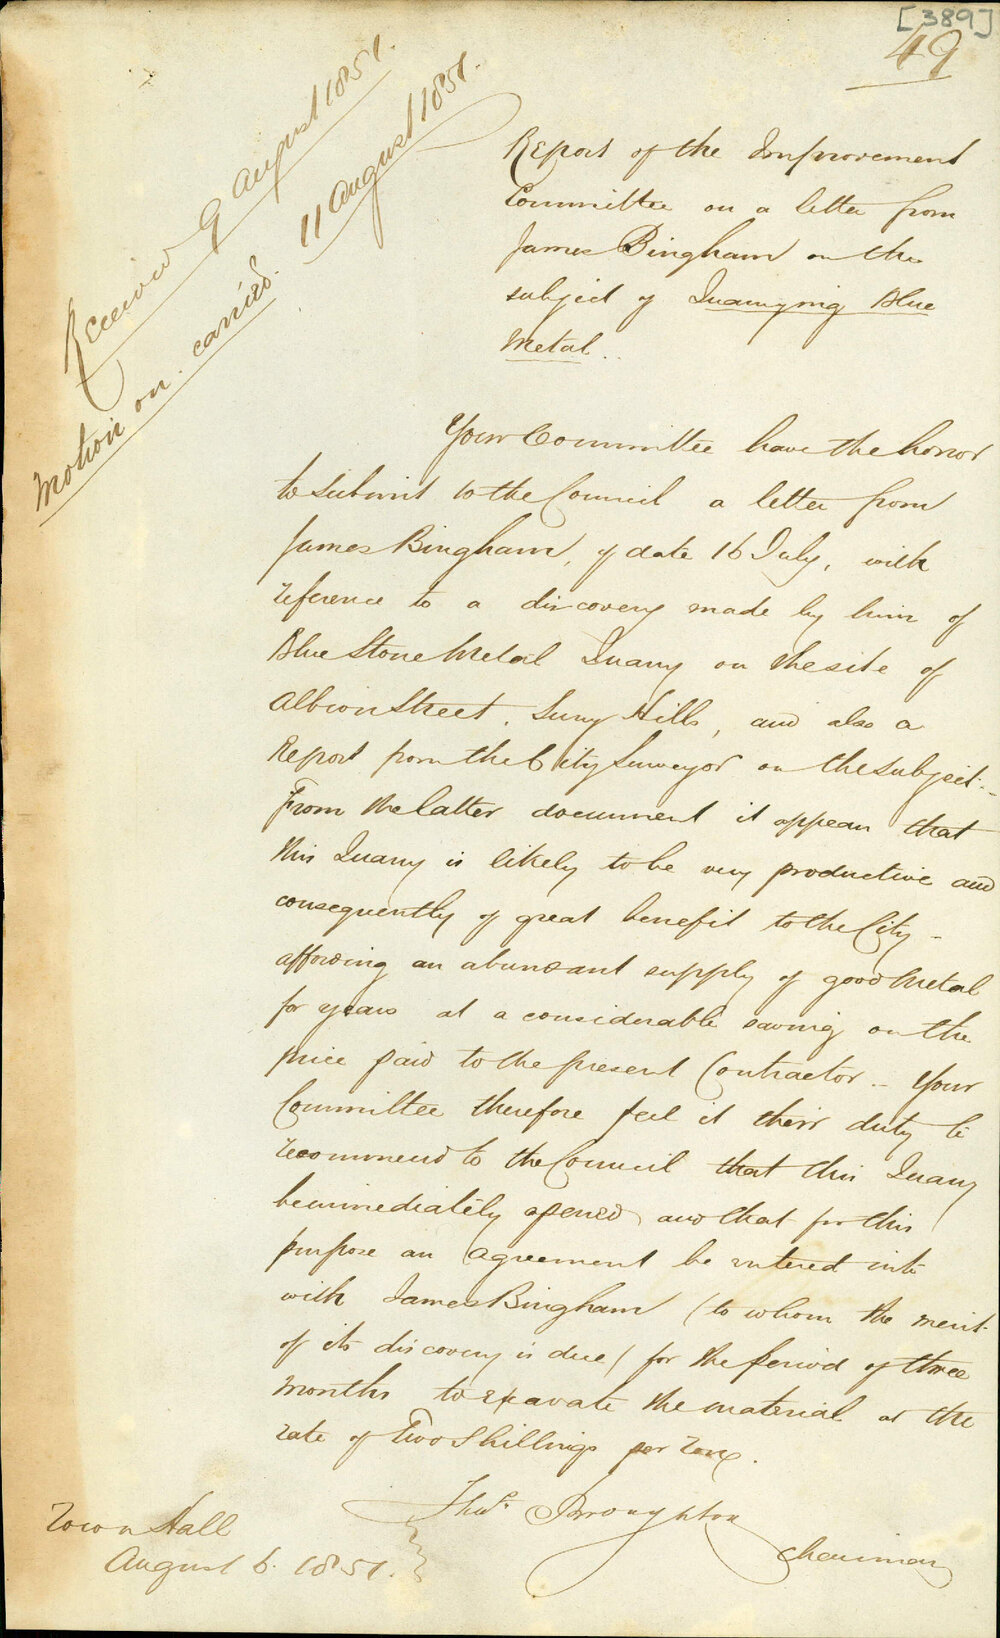 [389]
49
Received 9 August 1851.
Motion on. carried. 11 August 1851.
Report of the Improvement
Committee on a letter from
James Bingham on the
subject of Quarrying Blue
Metal..
Your Committee have the honor
to submit to the Council a letter from
James Bingham, of date 16 July, with
reference to a discovery made by him of
Blue Stone Metal Quarry on the site of
Albion Street. Surry Hills, and also a
Report from the City Surveyor on the subject.-
From the latter document it appears that
this Quarry is likely to be very productive and
consequently of great benefit to the City -
affording an abundant supply of good Metal
for years at a considerable saving on the
price paid to the present Contractor.- Your
Committee therefore feel it their duty to
recommend to the Council that this Quarry
be immediately opened and that for this
purpose an agreement be entered into
with James Bingham (to whom the merit
of its discovery is due) for the period of three
months to excavate the material at the
rate of Two Shillings per
Thos. Broughton
Chairman
Town Hall
August 6. 1851.